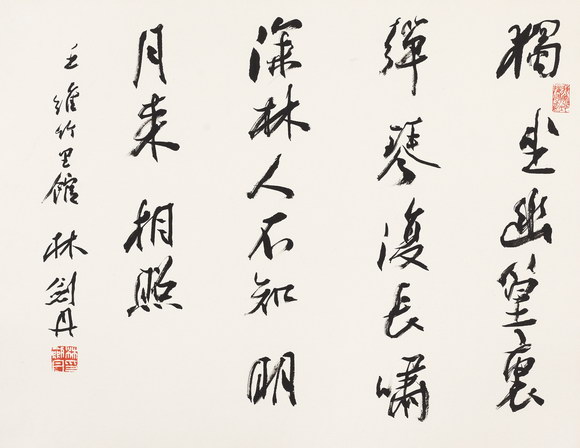 獨坐幽篁裏
彈琴復長嘯
深林人不知明
月来相照
王維竹里館 林劍丹